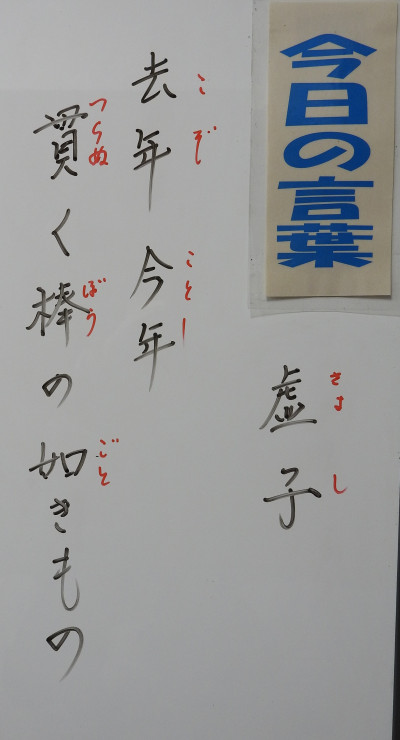 今日の言葉
虚子
きょし
去年今年
こぞことし
貫く棒の如きもの
つらぬぼうごと